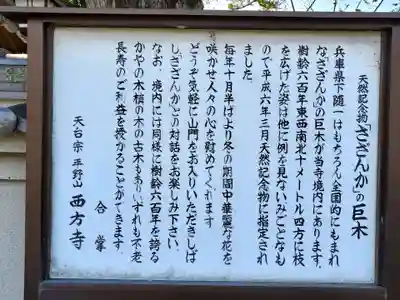 天然記念物「さざんか」の巨木
兵庫県下随一はもちろん全国的にもまれ
なさざんかの巨木が当寺境内にあります。
樹齢六百年東西南北十メートル四方に枝
を広げた姿は他に例を見ないみごとなも
ので平成六年三月天然記念物に指定され
ました。
毎年十月半ばより冬の期間中華麗な花を
咲かせ人々の心を慰めてくれます
どうぞ気軽に山門をお入りいただきしば
しさざんかとの対話をお楽しみ下さい。
なお、境内には同様に樹齢六百年を誇る
かやの木槙の木の古木も有りいずれも不老
長寿のご利益を授かることができます。
合掌
天台宗 平野山 西方寺